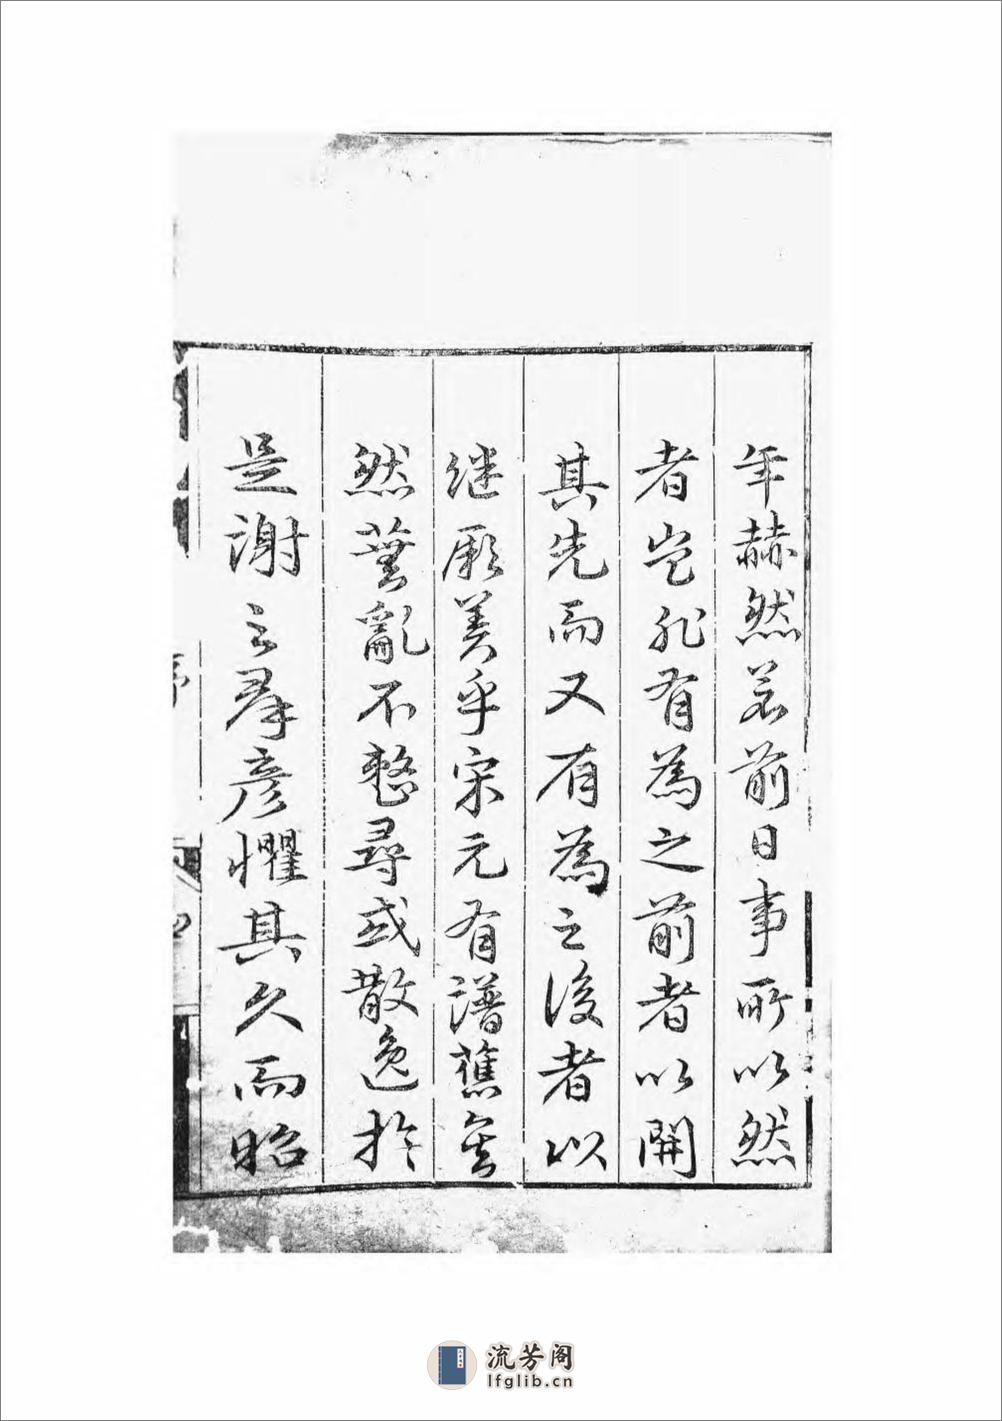 年赫然若前日事所以然
者豈非有為之前者以開
其先而又有為之後者以
継厥美乎宋元有譜舊矣
然蕪亂不整尋或散逸於
是謝之羣彦懼其久而昭
序
流芳阁
lfglib.cn